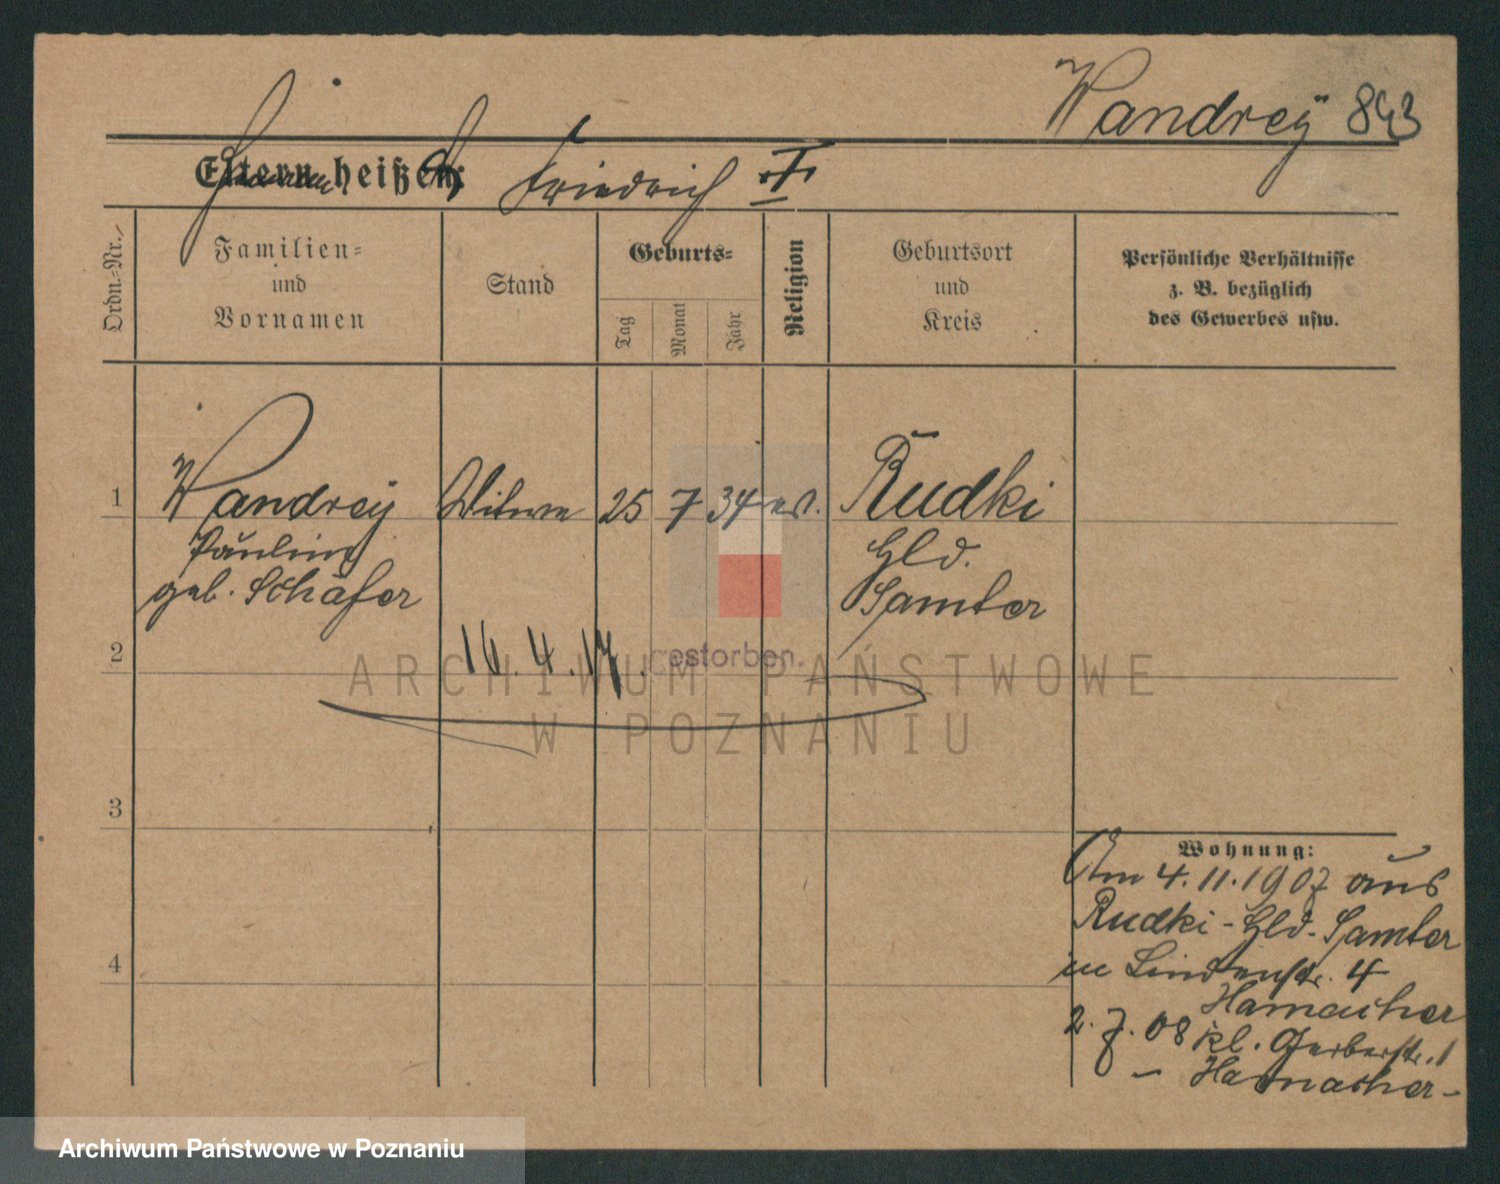 Wandrey 843
Eltern heißen:
Friedrich
Ordn.-Nr.
Familien-
und
Vornamen
Stand
Geburts-
Tag
Monat
Jahr
Religion
Geburtsort
und
Kreis
Persönliche Verhältnisse
z. B. bezüglich
des Gewerbes usw.
1
Wandrey Witwe 25 7 34 ev. Rudki
Pauline
geb. Schäfer
Hld.
Samter
2
16.4.17. gestorben.
ARCHIWUM PAŃSTWOWE
W POZNANIU
3
4
Wohnung:
Am 4.11.1907 aus
Rudki-Hld. Samter
in Lindenstr. 4
Hamacher
2.7.08 kl. Gerberstr. 1
- Hamacher -
Archiwum Państwowe w Poznaniu